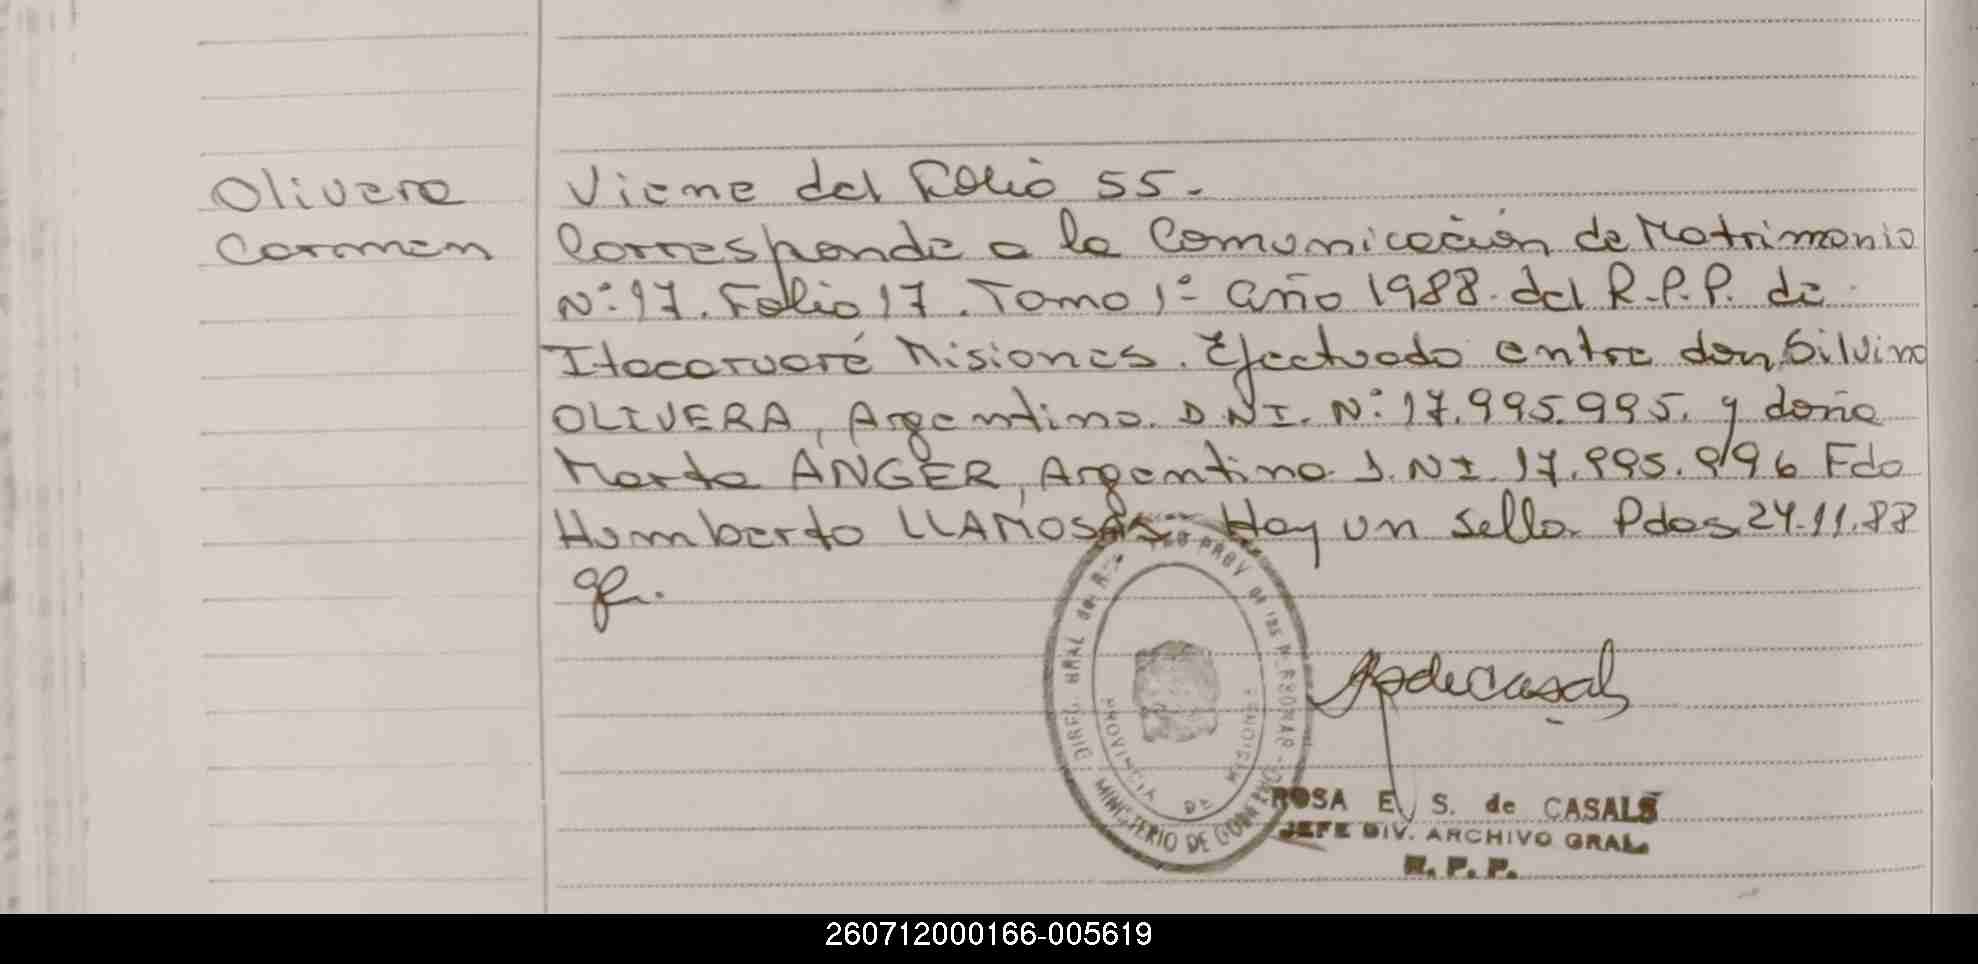 Olivera
Carmen
Viene del Folio 55.-
Corresponde a la Comunicación de Matrimonio
N°:17. Folio 17. Tomo 1° año 1988. del R.P.P. de
Itacaruaré Misiones. Efectuado entre don Silvino
OLIVERA, Argentino. D.N.I. N°:17.995.995. y doña
Marta ANGER, Argentina. D.N.I. 17.995.996 Fdo
Humberto LLAMOSAS. Hay un sello. Pdas 24.11.88
DIREC. GRAL de R.
PROV. DE las PERSONAS
MINISTERIO DE GOBIERNO
PROVINCIA DE MISIONES
ROSA E. S. de CASALS
JEFE DIV. ARCHIVO GRAL.
R. P. P.
260712000166-005619